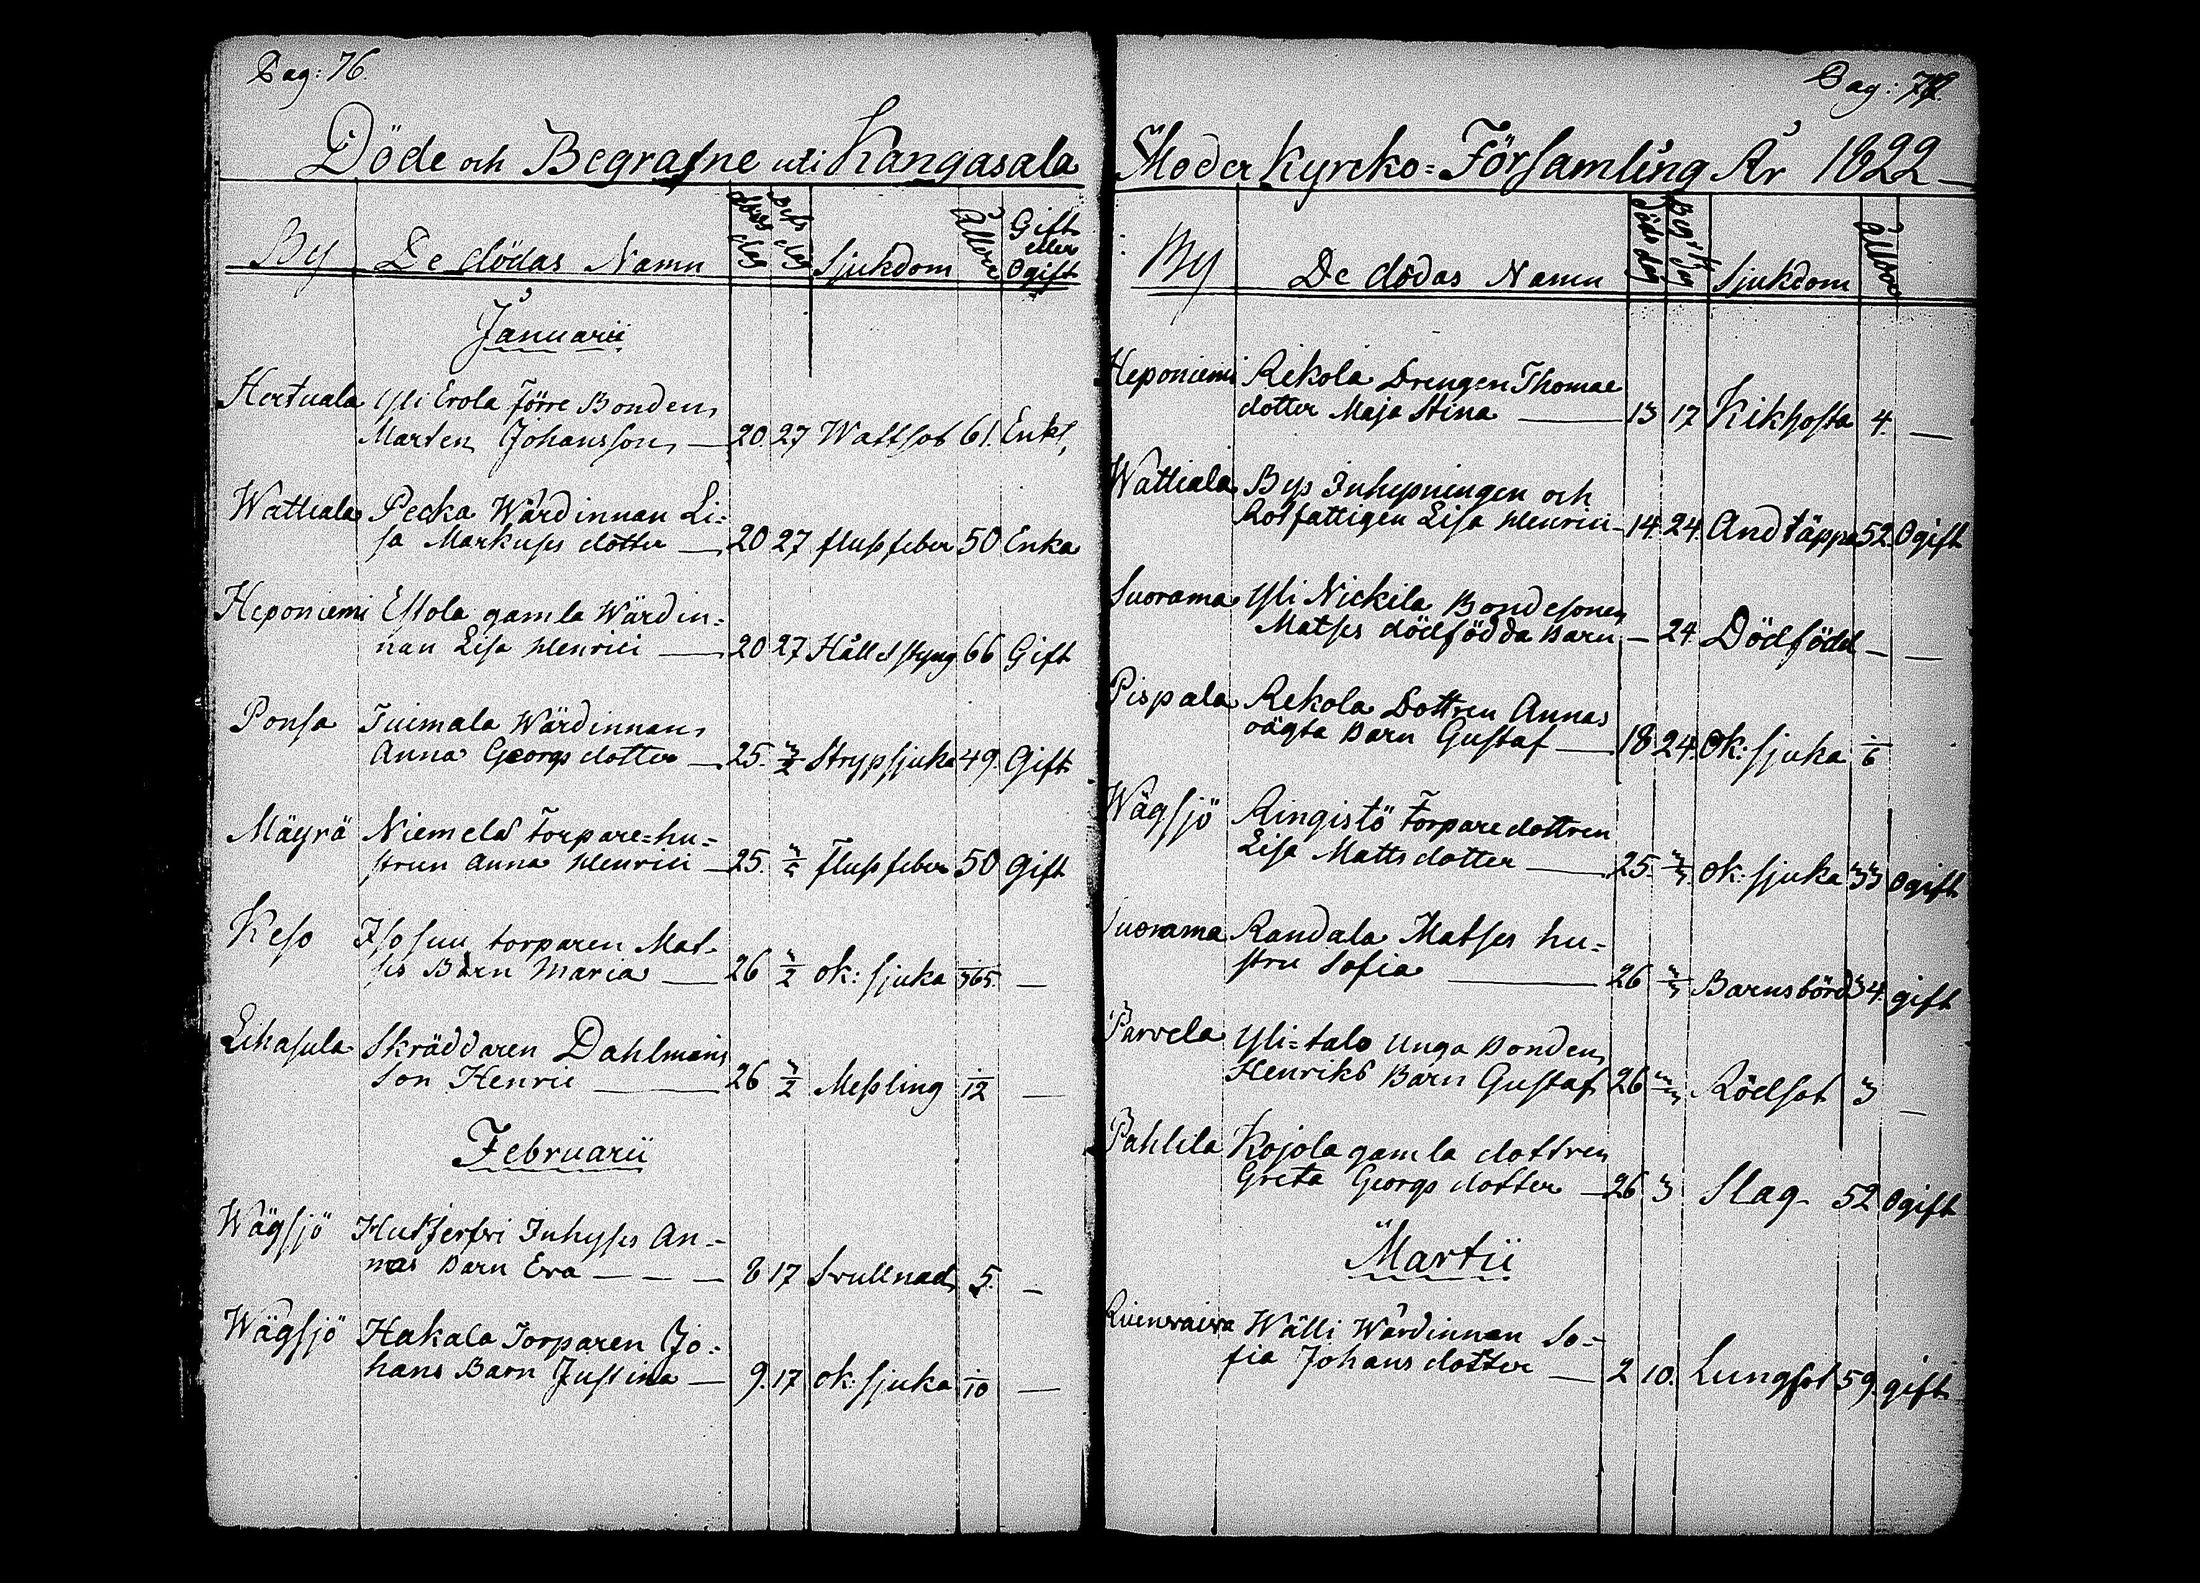 Pag: 76.
Döde och Begrafne uti Kangasala
By De dödas Namn döds dag Sjukdom Ålder Gift eller Ogift
Januarii
Hertuala Yli Erola förre Bonden
Marten Johansson — 20. 27 Wattsot 61. Enkl.
Wattiala Pecka Wärdinnan Li=
sa Markusdotter — 20 27 flussfeber 50 Enka
Heponiemi Eskola gamla Wärdin=
nan Lisa Henrici — 20 27 Håll o styng 66 Gift
Ponsa Tuimala Wärdinnan
Anna Georgs dotter — 25. 3/2 Strypsjuka 49. Gift
Mäyrä Niemelä Torpare=hu=
strun Anna Henrici — 25. 3/2 Flussfeber 50 Gift
Keso Isosuu torparen Mat-
ses Barn Maria — 26 3/2 ok: sjuka 1/365. —
Lihasula Skräddaren Dahlmans
son Henric — 26 3/2 Messling 1/12 —
Februarii
Wägsjö Inhyses An=
nas Barn Eva — — — 8 17 Svullnad 5. —
Wägsjö Hakala Torparen Jo=
hans Barn Justina — 9. 17 ok: sjuka 1/10 —
Pag: 77.
Moder Kyrcko=Församling År 1822 —
By De dödas Namn Döds dag Begr: dag Sjukdom Ålder
Heponiemi Rekola Drengen Thomae
dotter Maja Stina — 13 17 Kikhosta 4. —
Wattiala Bys Inhysningen och
Rotfattigen Lisa Henrici — 14. 24. Andtäppa 52. Ogift
Suorama Yli Nickila Bondesonen
Matses dödfödda Barn — 24 Dödfödd — —
Pispala Rekola Dottren Annas
oägta Barn Gustaf — 18 24. Ok: sjuka 1/6
Wägsjö Ringistö Torparedottren
Lisa Matts dotter — 25. 3/3 ok: sjuka 33 Ogift
Suorama Randala Matses hu=
stru Sofia — 26 3/3 Barnsbörd 34. gift
Parvela Yli=talo Unga Bonden
Henriks Barn Gustaf 26 3/3 Rödsot 3 —
Pahlila Kojola gamla dottren
Greta Georgs dotter — 26 3 Slag — 52 Ogift
Martii
Wälli Wärdinnan So=
fia Johans dotter — 2 10. Lungsot 59. gift